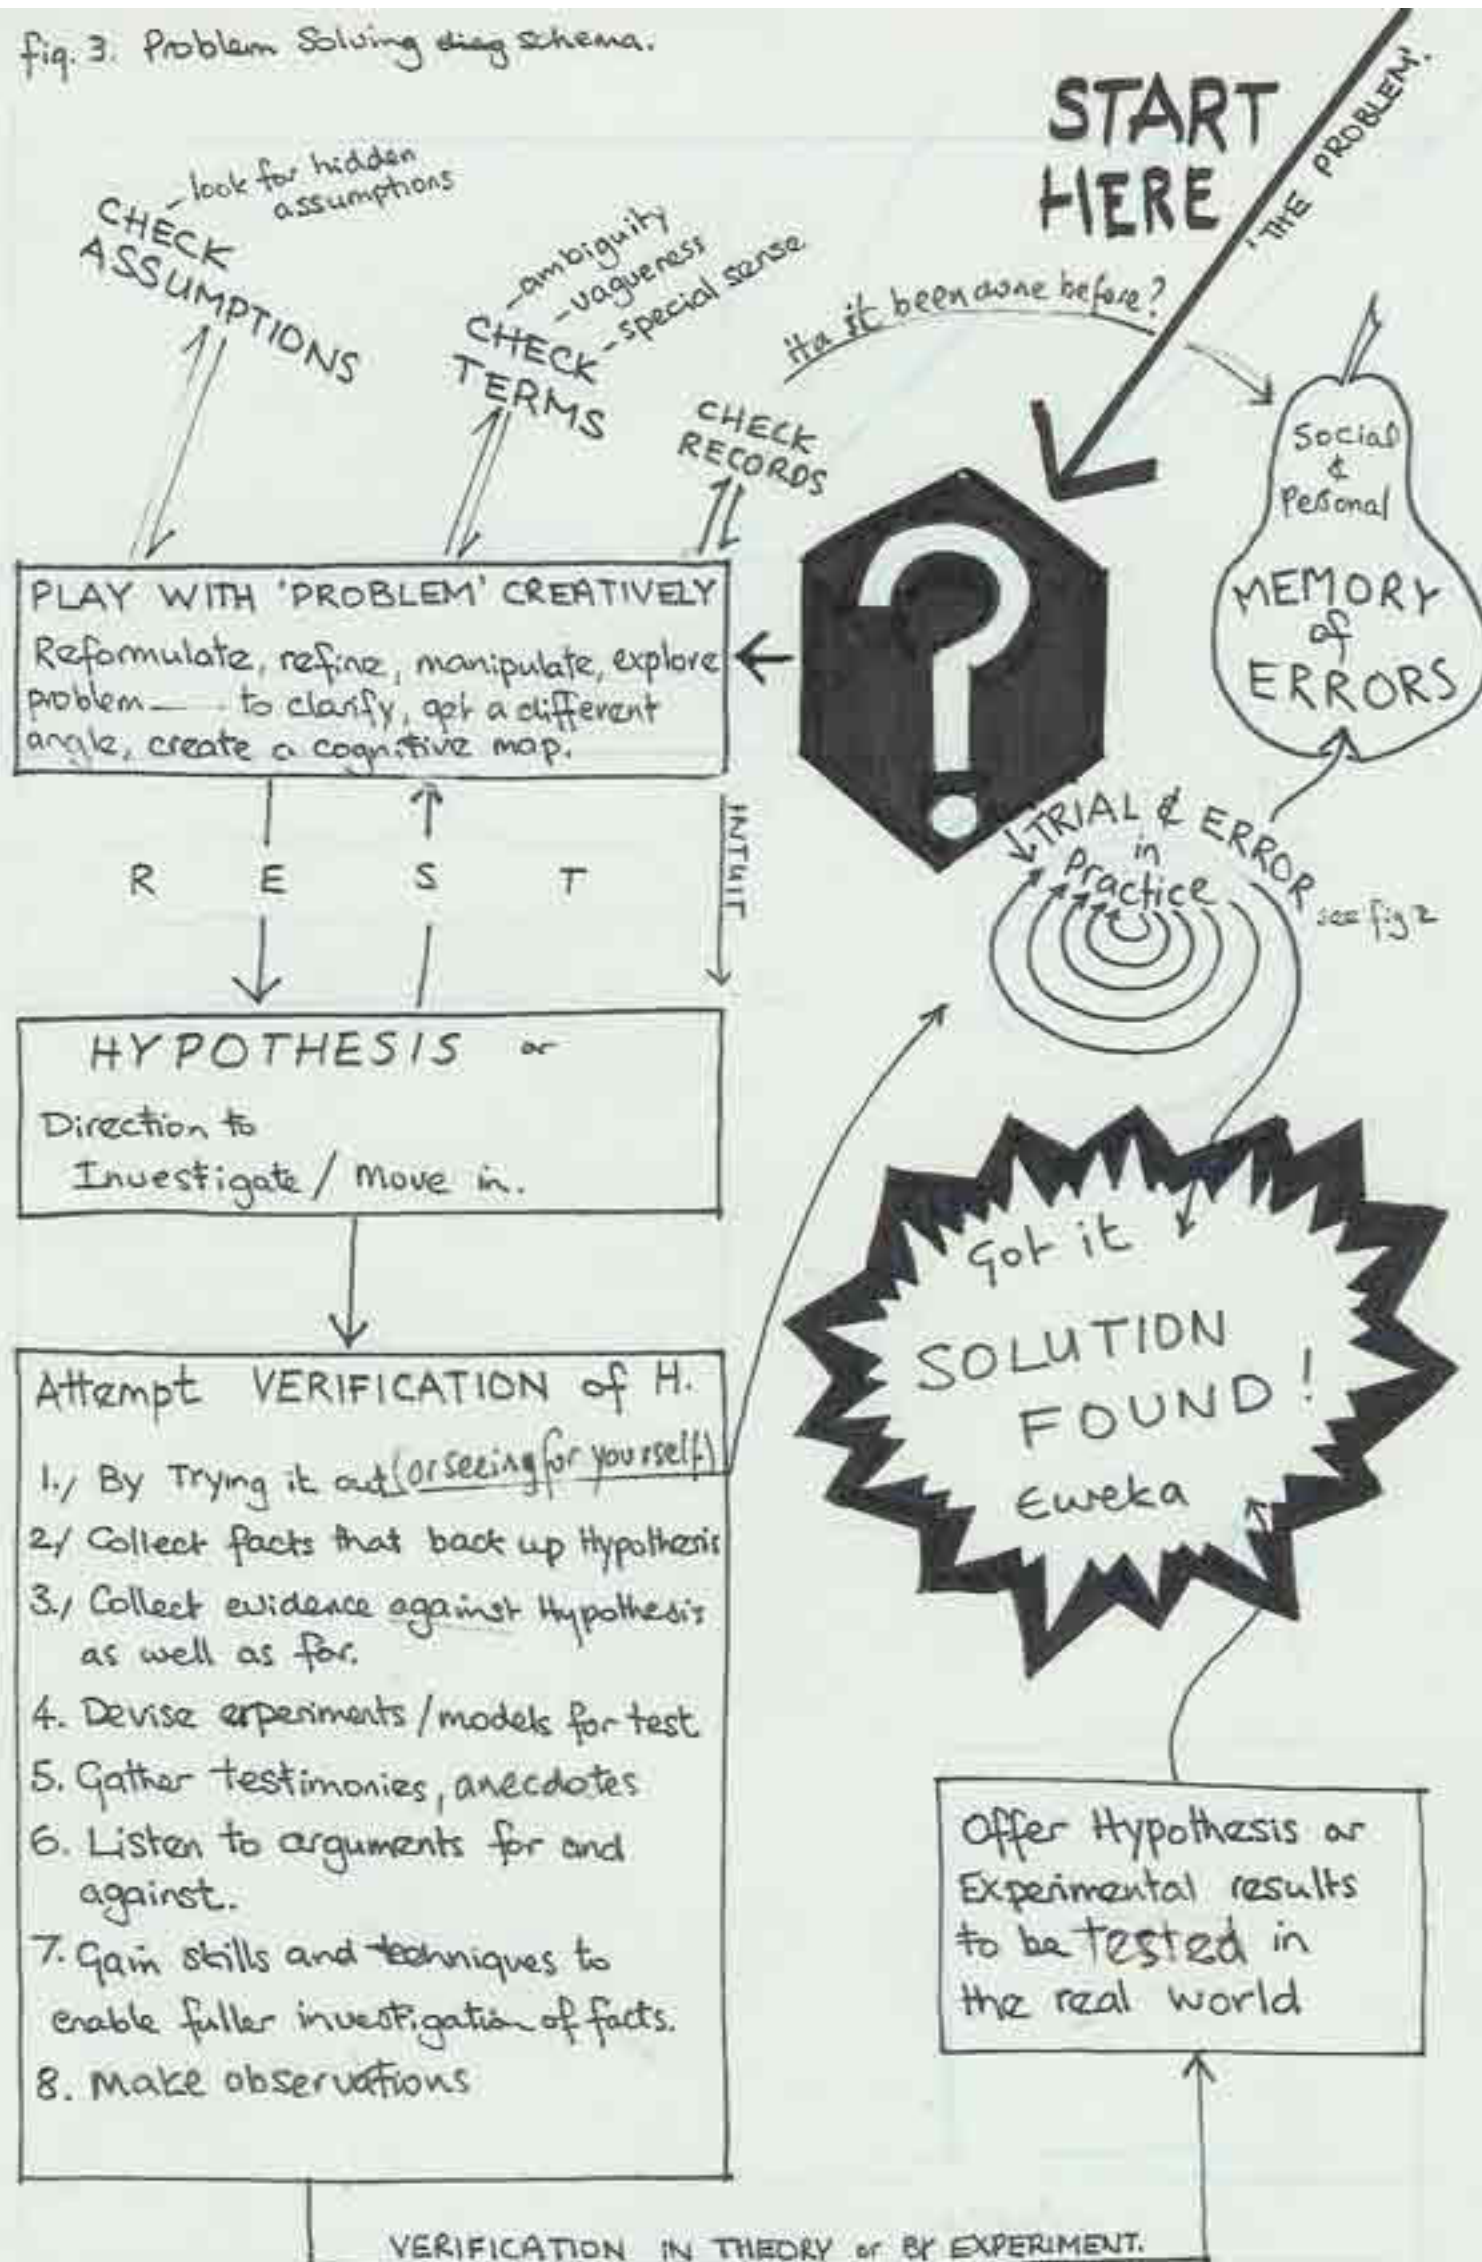 fig. 3. Problem Solving diag schema.
START
HERE
'THE PROBLEM'.
CHECK
ASSUMPTIONS
- look for hidden
assumptions
CHECK
TERMS
- ambiguity
- vagueness
- special sense
CHECK
RECORDS
Ha it been done before?
Social
&
Personal
MEMORY
of
ERRORS
PLAY WITH 'PROBLEM' CREATIVELY
Reformulate, refine, manipulate, explore
problem — to clarify, get a different
angle, create a cognitive map.
?
TRIAL & ERROR
in
Practice
see fig 2
R E S T
INTUIT
HYPOTHESIS or
Direction to
Investigate / Move in.
Got it
SOLUTION
FOUND!
Eureka
Attempt VERIFICATION of H.
1./ By Trying it out (or seeing for yourself)
2./ Collect facts that back up Hypothesis
3./ Collect evidence against Hypothesis
as well as for.
4. Devise experiments / models for test
5. Gather testimonies, anecdotes
6. Listen to arguments for and
against.
7. Gain skills and techniques to
enable fuller investigation of facts.
8. Make observations
Offer Hypothesis or
Experimental results
to be tested in
the real world
VERIFICATION IN THEORY or BY EXPERIMENT.